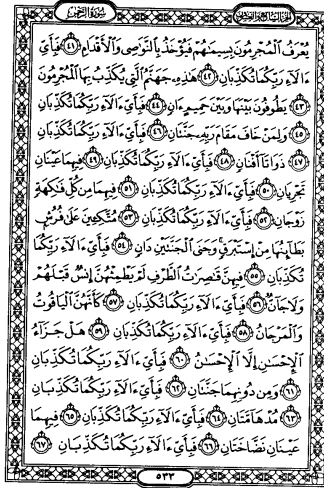 الجزء السابع والعشرون سورة الرحمن
يُعْرَفُ ٱلْمُجْرِمُونَ بِسِيمَٰهُمْ فَيُؤْخَذُ بِٱلنَّوَٰصِى وَٱلْأَقْدَامِ ﴿٤١﴾ فَبِأَىِّ
ءَالَآءِ رَبِّكُمَا تُكَذِّبَانِ ﴿٤٢﴾ هَٰذِهِۦ جَهَنَّمُ ٱلَّتِى يُكَذِّبُ بِهَا ٱلْمُجْرِمُونَ
﴿٤٣﴾ يَطُوفُونَ بَيْنَهَا وَبَيْنَ حَمِيمٍ ءَانٍ ﴿٤٤﴾ فَبِأَىِّ ءَالَآءِ رَبِّكُمَا تُكَذِّبَانِ
﴿٤٥﴾ وَلِمَنْ خَافَ مَقَامَ رَبِّهِۦ جَنَّتَانِ ﴿٤٦﴾ فَبِأَىِّ ءَالَآءِ رَبِّكُمَا تُكَذِّبَانِ
﴿٤٧﴾ ذَوَاتَآ أَفْنَانٍ ﴿٤٨﴾ فَبِأَىِّ ءَالَآءِ رَبِّكُمَا تُكَذِّبَانِ ﴿٤٩﴾ فِيهِمَا عَيْنَانِ
تَجْرِيَانِ ﴿٥٠﴾ فَبِأَىِّ ءَالَآءِ رَبِّكُمَا تُكَذِّبَانِ ﴿٥١﴾ فِيهِمَا مِن كُلِّ فَٰكِهَةٍ
زَوْجَانِ ﴿٥٢﴾ فَبِأَىِّ ءَالَآءِ رَبِّكُمَا تُكَذِّبَانِ ﴿٥٣﴾ مُتَّكِـِٔينَ عَلَىٰ فُرُشٍۭ
بَطَآئِنُهَا مِنْ إِسْتَبْرَقٍ ۚ وَجَنَى ٱلْجَنَّتَيْنِ دَانٍ ﴿٥٤﴾ فَبِأَىِّ ءَالَآءِ رَبِّكُمَا
تُكَذِّبَانِ ﴿٥٥﴾ فِيهِنَّ قَٰصِرَٰتُ ٱلطَّرْفِ لَمْ يَطْمِثْهُنَّ إِنسٌ قَبْلَهُمْ
وَلَا جَآنٌّ ﴿٥٦﴾ فَبِأَىِّ ءَالَآءِ رَبِّكُمَا تُكَذِّبَانِ ﴿٥٧﴾ كَأَنَّهُنَّ ٱلْيَاقُوتُ
وَٱلْمَرْجَانُ ﴿٥٨﴾ فَبِأَىِّ ءَالَآءِ رَبِّكُمَا تُكَذِّبَانِ ﴿٥٩﴾ هَلْ جَزَآءُ
ٱلْإِحْسَٰنِ إِلَّا ٱلْإِحْسَٰنُ ﴿٦٠﴾ فَبِأَىِّ ءَالَآءِ رَبِّكُمَا تُكَذِّبَانِ
﴿٦١﴾ وَمِن دُونِهِمَا جَنَّتَانِ ﴿٦٢﴾ فَبِأَىِّ ءَالَآءِ رَبِّكُمَا تُكَذِّبَانِ
﴿٦٣﴾ مُدْهَآمَّتَانِ ﴿٦٤﴾ فَبِأَىِّ ءَالَآءِ رَبِّكُمَا تُكَذِّبَانِ ﴿٦٥﴾ فِيهِمَا
عَيْنَانِ نَضَّاخَتَانِ ﴿٦٦﴾ فَبِأَىِّ ءَالَآءِ رَبِّكُمَا تُكَذِّبَانِ ﴿٦٧﴾
٥٣٣